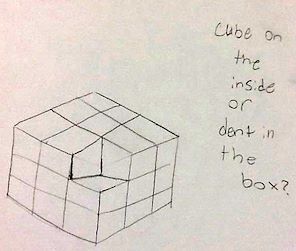 Cube on
the
inside
or
dent in
the
box?